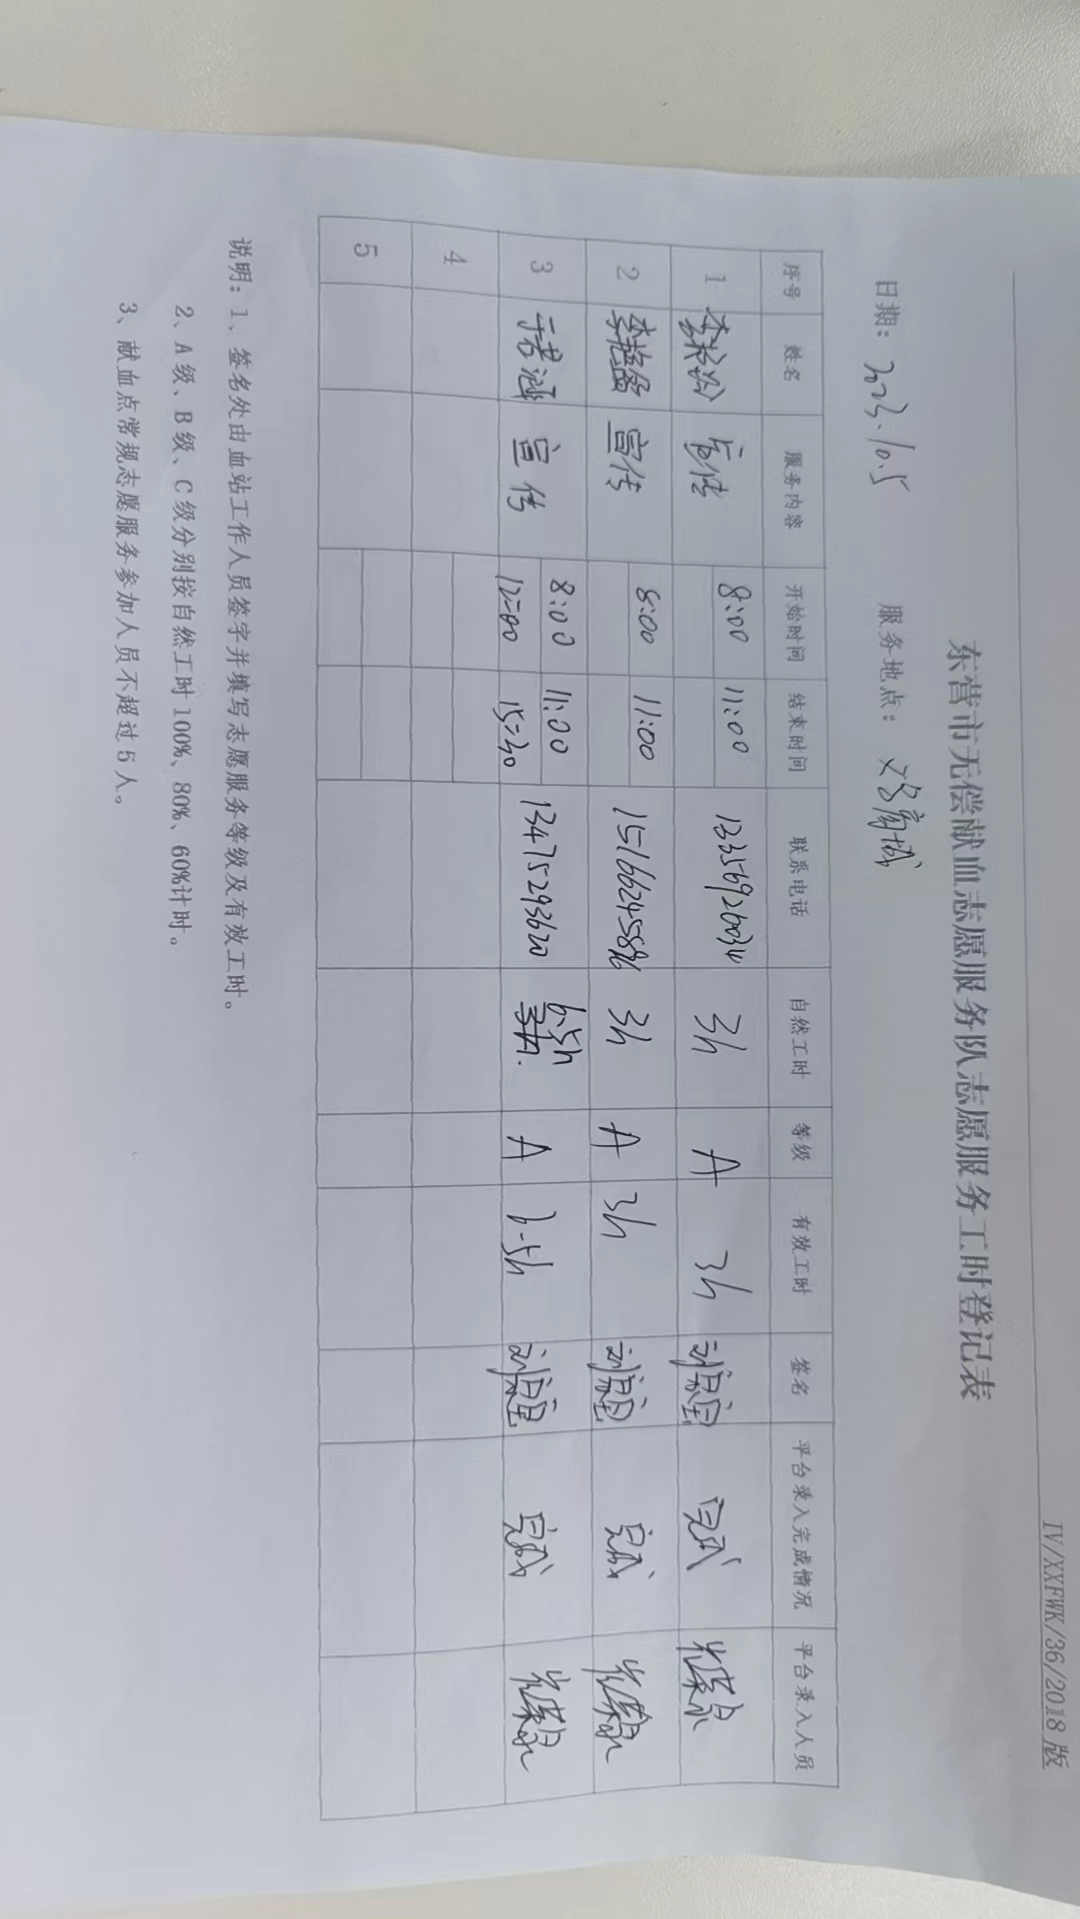 IV/XXFWK/36/2018版
东营市无偿献血志愿服务队志愿服务工时登记表
日期：2023.10.5 服务地点：商城
序号 姓名 服务内容 开始时间 结束时间 联系电话 自然工时 等级 有效工时 签名 平台录入完成情况 平台录入人员
1 李 宣传 8:00 11:00 13356926034 3h A 3h 完成
2 李 宣传 8:00 11:00 15166245896 3h A 3h 完成
3 于若涵 宣传 8:00 11:00 13475293620 6.5h A 6.5h 完成
12:00 15:30
4
5
说明：1、签名处由血站工作人员签字并填写志愿服务等级及有效工时。
2、A级、B级、C级分别按自然工时100%、80%、60%计时。
3、献血点常规志愿服务参加人员不超过5人。